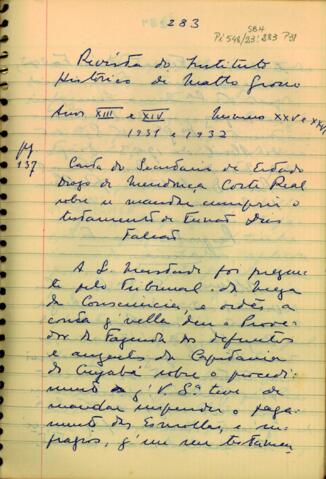 283
SBH
Pi 548/23:283 P31
Revista do Instituto
Historico de Matto Grosso
Anos XIII e XIV Numeros XXV e XXVI
1931 e 1932
pg
137
Carta do Secretario de Estado
Diogo de Mendonça Corte Real
sobre se mandar cumprir o
testamento de Fernão Dias
Falcão
A S. Magestade foi presen-
te pelo Tribunal da Meza
da Consciencia, e ordẽs a
conta q̃ della deu o Prove-
dor da Fazenda dos defuntos
e auzentes da Capitania
do Cuyabá sobre o procedi-
mento q̃ V. Sª teve de
mandar suspender o paga-
mento das Esmollas, e su-
fragios, q̃ em seu testamen